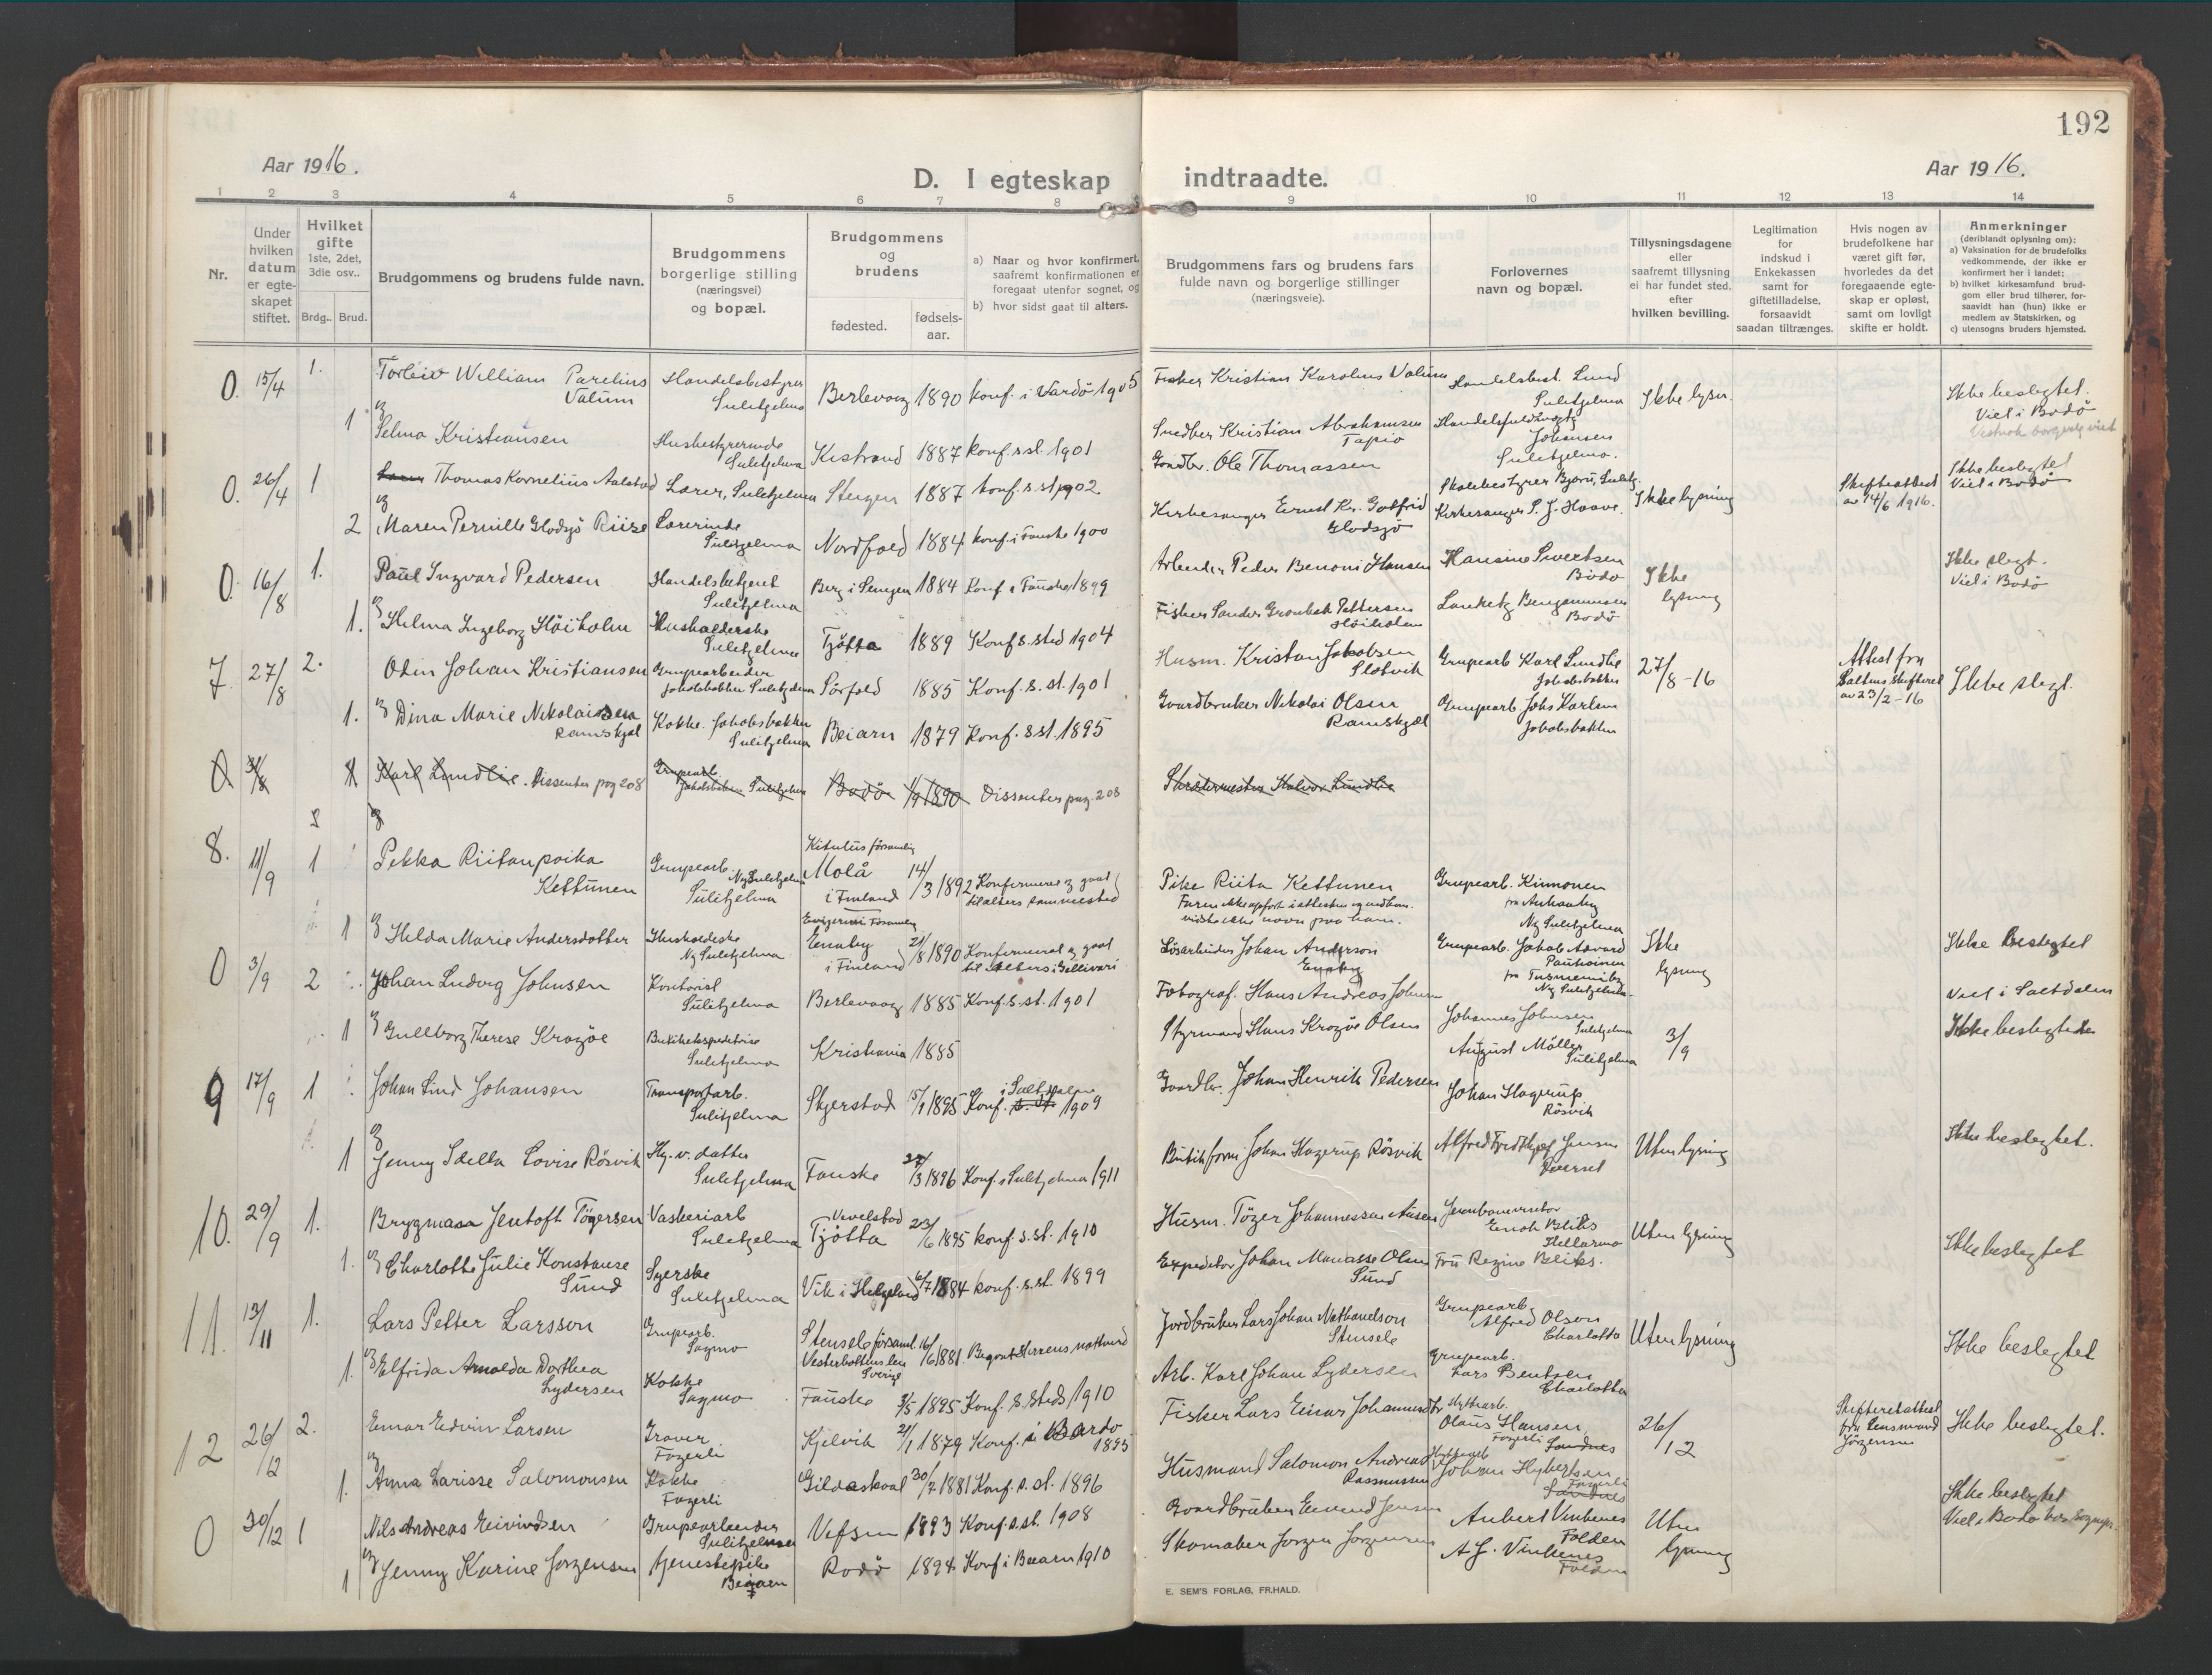 192
Aar 1916.
D. I egteskap indtraadte.
Aar 1916.
1 2 3 4 5 6 7 8 9 10 11 12 13 14
Nr.
Under hvilken datum er egte-skapet stiftet.
Hvilket gifte 1ste, 2det, 3die osv..
Brdg.. Brud.
Brudgommens og brudens fulde navn.
Brudgommens borgerlige stilling (næringsvei) og bopæl.
Brudgommens og brudens
fødested.
fødsels-aar.
a) Naar og hvor konfirmert, saafremt konfirmationen er foregaat utenfor sognet, og
b) hvor sidst gaat til alters.
Brudgommens fars og brudens fars fulde navn og borgerlige stillinger (næringsveie).
Forlovernes navn og bopæl.
Tillysningsdagene eller saafremt tillysning ei har fundet sted, efter hvilken bevilling.
Legitimation for indskud i Enkekassen samt for giftetilladelse, forsaavidt saadan tiltrænges.
Hvis nogen av brudefolkene har været gift før, hvorledes da det foregaaende egte-skap er opløst, samt om lovligt skifte er holdt.
Anmerkninger (deriblandt oplysning om):
a) Vaksination for de brudefolks vedkommende, der ikke er konfirmert her i landet;
b) hvilket kirkesamfund brud-gom eller brud tilhører, for-saavidt han (hun) ikke er medlem av Statskirken, og
c) utensogns bruders hjemsted.
0. 15/4 1. Torleiv William Parelius Valum Handelsbestyrer Sulitjelma Berlevaag 1890 konf. i Vardö 1905 Fisker Kristian Karolius Valum Handelsbest. Lund Sulitjelma Ikke lysn. Ikke beslegtet. Viet i Bodö
1 og Selma Kristiansen Husbestyrerinde Sulitjelma Kistrand 1887 konf. s. st. 1901 Snedker Kristian Abrahamsen Tapio Johansen Sulitjelma.
0. 26/4 1 Thomas Kornelius Aalstad Lærer, Sulitjelma Steigen 1887 konf. s. st. 1902 Gaardbr. Ole Thomassen Skolebestyrer Bjørn, Sulitj. Ikke lysning Skifteattest av 14/6 1916. Ikke beslegtet Viet i Bodö
2 og Maren Pernille Glodsjö Riise Lærerinde Sulitjelma Nordfold 1884 konf. i Fauske 1900 Kirkesanger Ernst Kr. Gotfrid Glodsjö Kirkesanger S. J. Haave.
0. 16/8 1. Paul Ingvard Pedersen Handelsbetjent Sulitjelma Berg i Senjen 1884 Konf. i Fauske 1899 Arbeider Peder Benoni Hansen Hansine Sivertsen Bodö Ikke lysning Ikke slegt. Viet i Bodö
1. og Helma Ingeborg Höiholm Husholderske Sulitjelma Tjötta 1889 Konf. s. sted 1904 Fisker Sander Grönbek Pettersen Höiholm Benjaminsen Bodö
7. 27/8 2. Odin Johan Kristiansen Grupearbeider Jakobsbakken Sulitjelma Sörfold 1885 Konf. s. st. 1901 Husm. Kristian Jakobsen Slotvik Grupearb Karl Lundlie Jakobsbakken 27/8-16 Attest fra Saltens skifteret av 23/2-16 Ikke slegt.
1. og Dina Marie Nikolaisen Ramskjel Kokke. Jakobsbakken Sulitjelma Beiarn 1879 Konf. s. st. 1895 Gaardbruker Nikolai Olsen Ramskjel Grupearb Johs Karlsen Jakobsbakken
0 31/8 1 Karl Lundlie. Dissenter pag 208 Grupearb. Jakobsbakken Sulitjelma Bodö 1/9 1890 Dissenter pag. 208 Skredermester Halvor Lundlie
og
8. 11/9 1 Pekka Riitanpoika Kettunen Grupearb. Ny Sulitjelma Sulitjelma Molå i Finland 14/3 1892 Konfirmeret og gaat til alters sammested Pike Riita Kettunen Grupearb. Kinnonen Ny Sulitjelma
1 og Hilda Marie Andersdotter Husholderske Ny Sulitjelma Enaby i Finland 21/8 1890 Konfirmeret og gaat til alters i Gellivari Lösarbeider Johan Anderson Enaby Grupearb. Jakob Ny Sulitjelma Ikke lysning Ikke beslegtet
0 3/9 2 Johan Ludvig Johnsen Kontorist Sulitjelma Berlevaag 1885 Konf. s. st. 1901 Fotograf. Hans Andreas Johnsen Johannes Johnsen Sulitjelma Viet i Saltdalen
1 og Gullborg Therese Kragöe Butikekspeditrice Sulitjelma Kristiania 1885 Styrmand Hans Kragöe Olsen August Möller Sulitjelma 3/9 Ikke beslegtede
9 17/9 1 Johan Lind Johansen Transportarb. Sulitjelma Skjerstad 15/1 1895 Konf. i Saltdalen 1909 Gaardbr. Johan Henrik Pedersen Johan Hagerup Rösvik
1 og Jenny Idella Lovise Rösvik Hj. v. datter Sulitjelma Fauske 22/3 1896 Konf. i Sulitjelma 1911 Butikform Johan Hagerup Rösvik Alfred Fridthjof Jensen Uten lysning Ikke beslegtet.
10. 29/9 1. Brygmann Jentoft Tögersen Vaskeriarb Sulitjelma Vevelstad Tjötta 23/6 1895 konf. s. st. 1910 Husm. Töger Johannessen Enok Bliks Hellarmo Uten lysning Ikke beslegtet
1. og Charlotte Julie Konstanse Sund Syerske Sulitjelma Vik i Helgeland 6/7 1884 konf. s. st. 1899 Expeditor Johan Manasse Olsen Sund Fru Regine Bliks.
11. 13/11 1. Lars Petter Larsson Grupearb. Sagmo Stensele församl. Vesterbottens len Sverige 16/6 1881. Begaat Herrens nattverd Jordbruker Lars Johan Nathanelson Stensele Grupearb Alfred Olsen Charlotta Uten lysning Ikke beslegtet
1. og Elfrida Arnolda Dorthea Lydersen Kokke Sagmo Fauske 3/5 1895 Konf. s. steds 1910 Arb. Karl Johan Lydersen Grupearb. Lars Bentsen Charlotta
12 26/12 2. Einar Edvin Larsen Graver Fagerli Kjelvik 21/1 1879 Konf. i Bardo 1895 Fisker Lars Einar Johannes Hyttearb. Olaus Hansen Fagerli Sandnes 26/12 Skifteretsattest fra Lensmand Jörgensen Ikke beslegtet.
og 1. Anna Larisse Salomonsen Kokke Fagerli Gildeskaal 30/7 1881 Konf. s. st. 1896 Husmand Salomon Andreas Rasmussen Hyttearb Johan Hybertsen Fagerli Sandnes
0 30/12 1 Nils Andreas Eivindsen Grupearbeider Sulitjelma Vefsen 1893 Konf. s. st. 1908 Gaardbruker Eivind Jensen Aubert Vinkenes Folden Uten lysning Ikke beslegtet
1 og Jenny Karine Jorgensen tjenestepike Beiarn Rodö 1894 Konf. i Beiarn 1910 Skomaker Jorgen Jorgensen A. J. Vinkenes Folden
E. SEM'S FORLAG, FR.HALD.